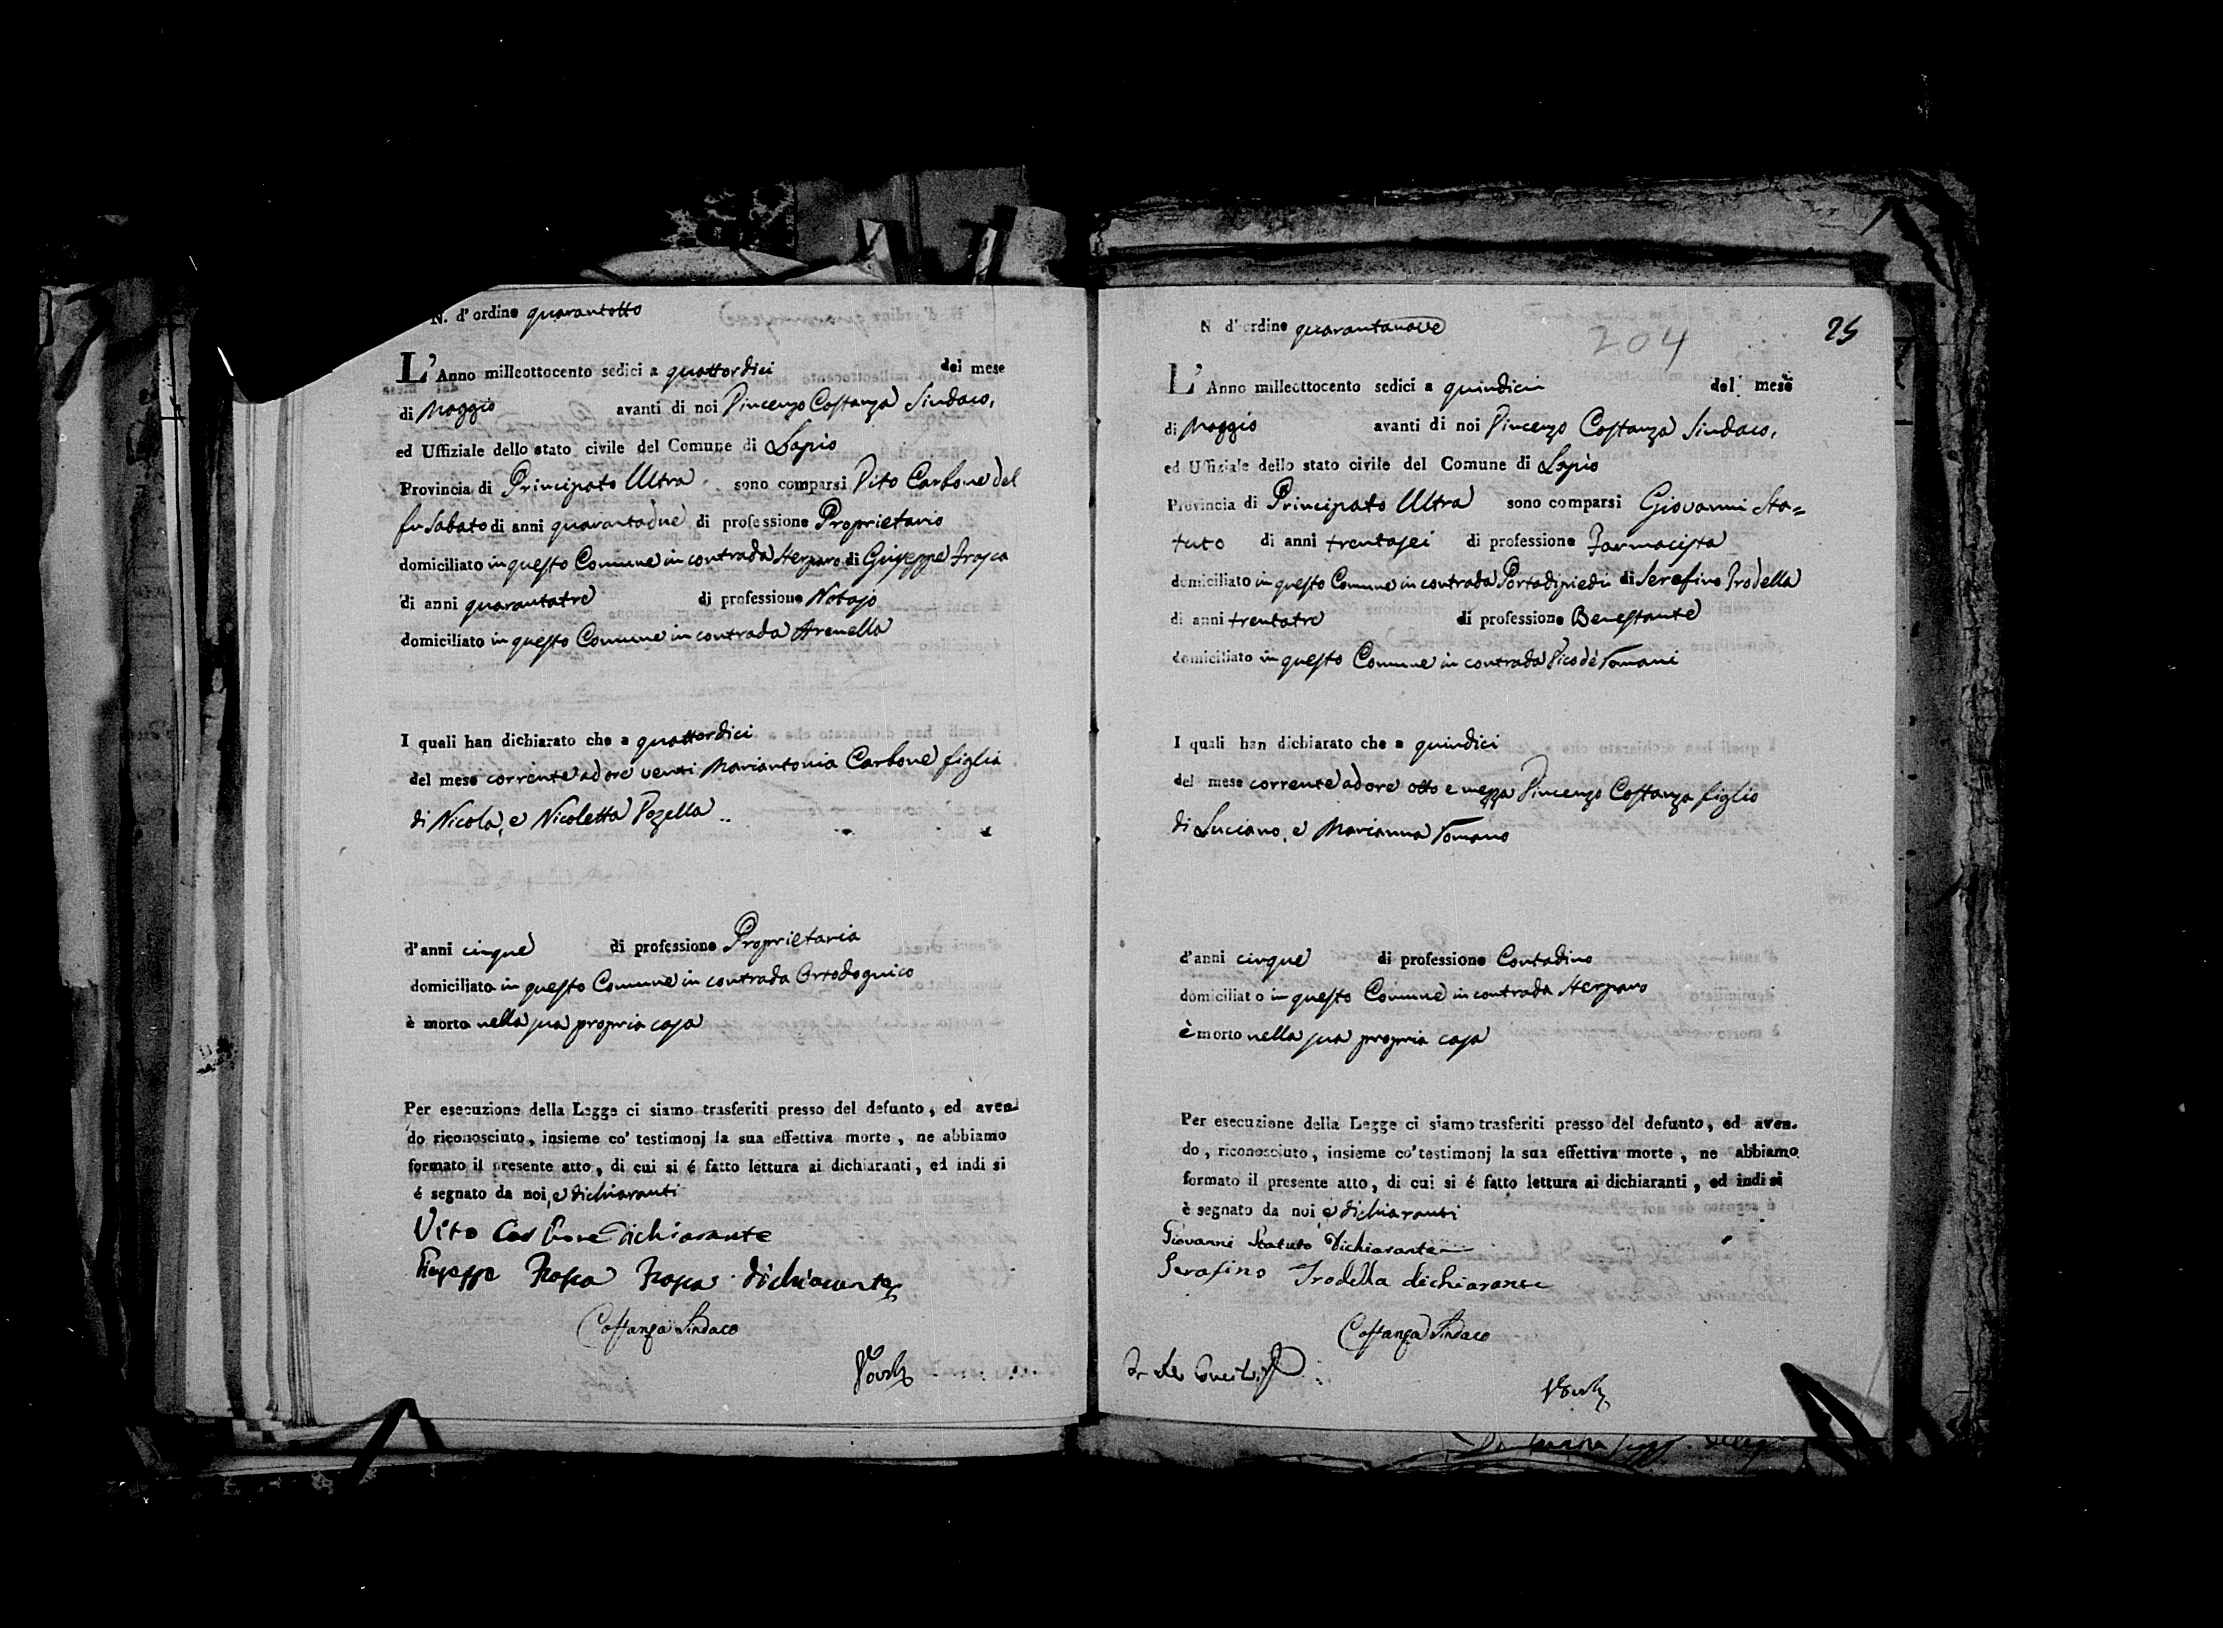 N. d'ordine quarantotto
L'Anno milleottocento sedici a quattordici del mese
di Maggio avanti di noi Vincenzo Costanza Sindaco,
ed Uffiziale dello stato civile del Comune di Lapio
Provincia di Principato Ultra sono comparsi Vito Carbone del
fu Sabato di anni quarantadue di professione Proprietario
domiciliato in questo Comune in contrada Herparo di Giuseppe Trosca
di anni quarantatre di professione Notajo
domiciliato in questo Comune in contrada Arenella
I quali han dichiarato che a quattordici
del mese corrente ad ore venti Mariantonia Carbone figlia
di Nicola, e Nicoletta Pozella
d'anni cinque di professione Proprietaria
domiciliata in questo Comune in contrada Ortodognico
è morta nella sua propria casa
Per esecuzione della Legge ci siamo trasferiti presso del defunto, ed aven-
do riconosciuto, insieme co' testimonj la sua effettiva morte, ne abbiamo
formato il presente atto, di cui si é fatto lettura ai dichiaranti, ed indi si
é segnato da noi, e dichiaranti
Vito Carbone dichiarante
Giuseppe Trosca dichiarante
Costanza Sindaco
N d'ordine quarantanove
204
25
L'Anno milleottocento sedici a quindici del mese
di Maggio avanti di noi Vincenzo Costanza Sindaco,
ed Uffiziale dello stato civile del Comune di Lapio
Provincia di Principato Ultra sono comparsi Giovanni Sta=
tuto di anni trentasei di professione Farmacista
domiciliato in questo Comune in contrada Portadipiedi di Serafino Trodella
di anni trentatre di professione Benestante
domiciliato in questo Comune in contrada Vico de Romani
I quali han dichiarato che a quindici
del mese corrente ad ore otto e mezza Vincenzo Costanza figlio
di Luciano, e Marianna Romano
d'anni cinque di professione Contadino
domiciliato in questo Comune in contrada Herparo
è morto nella sua propria casa
Per esecuzione della Legge ci siamo trasferiti presso del defunto, ed aven-
do, riconosciuto, insieme co' testimonj la sua effettiva morte, ne abbiamo
formato il presente atto, di cui si é fatto lettura ai dichiaranti, ed indi si
è segnato da noi, e dichiaranti
Giovanni Statuto dichiarante
Serafino Trodella dichiarante
Costanza Sindaco